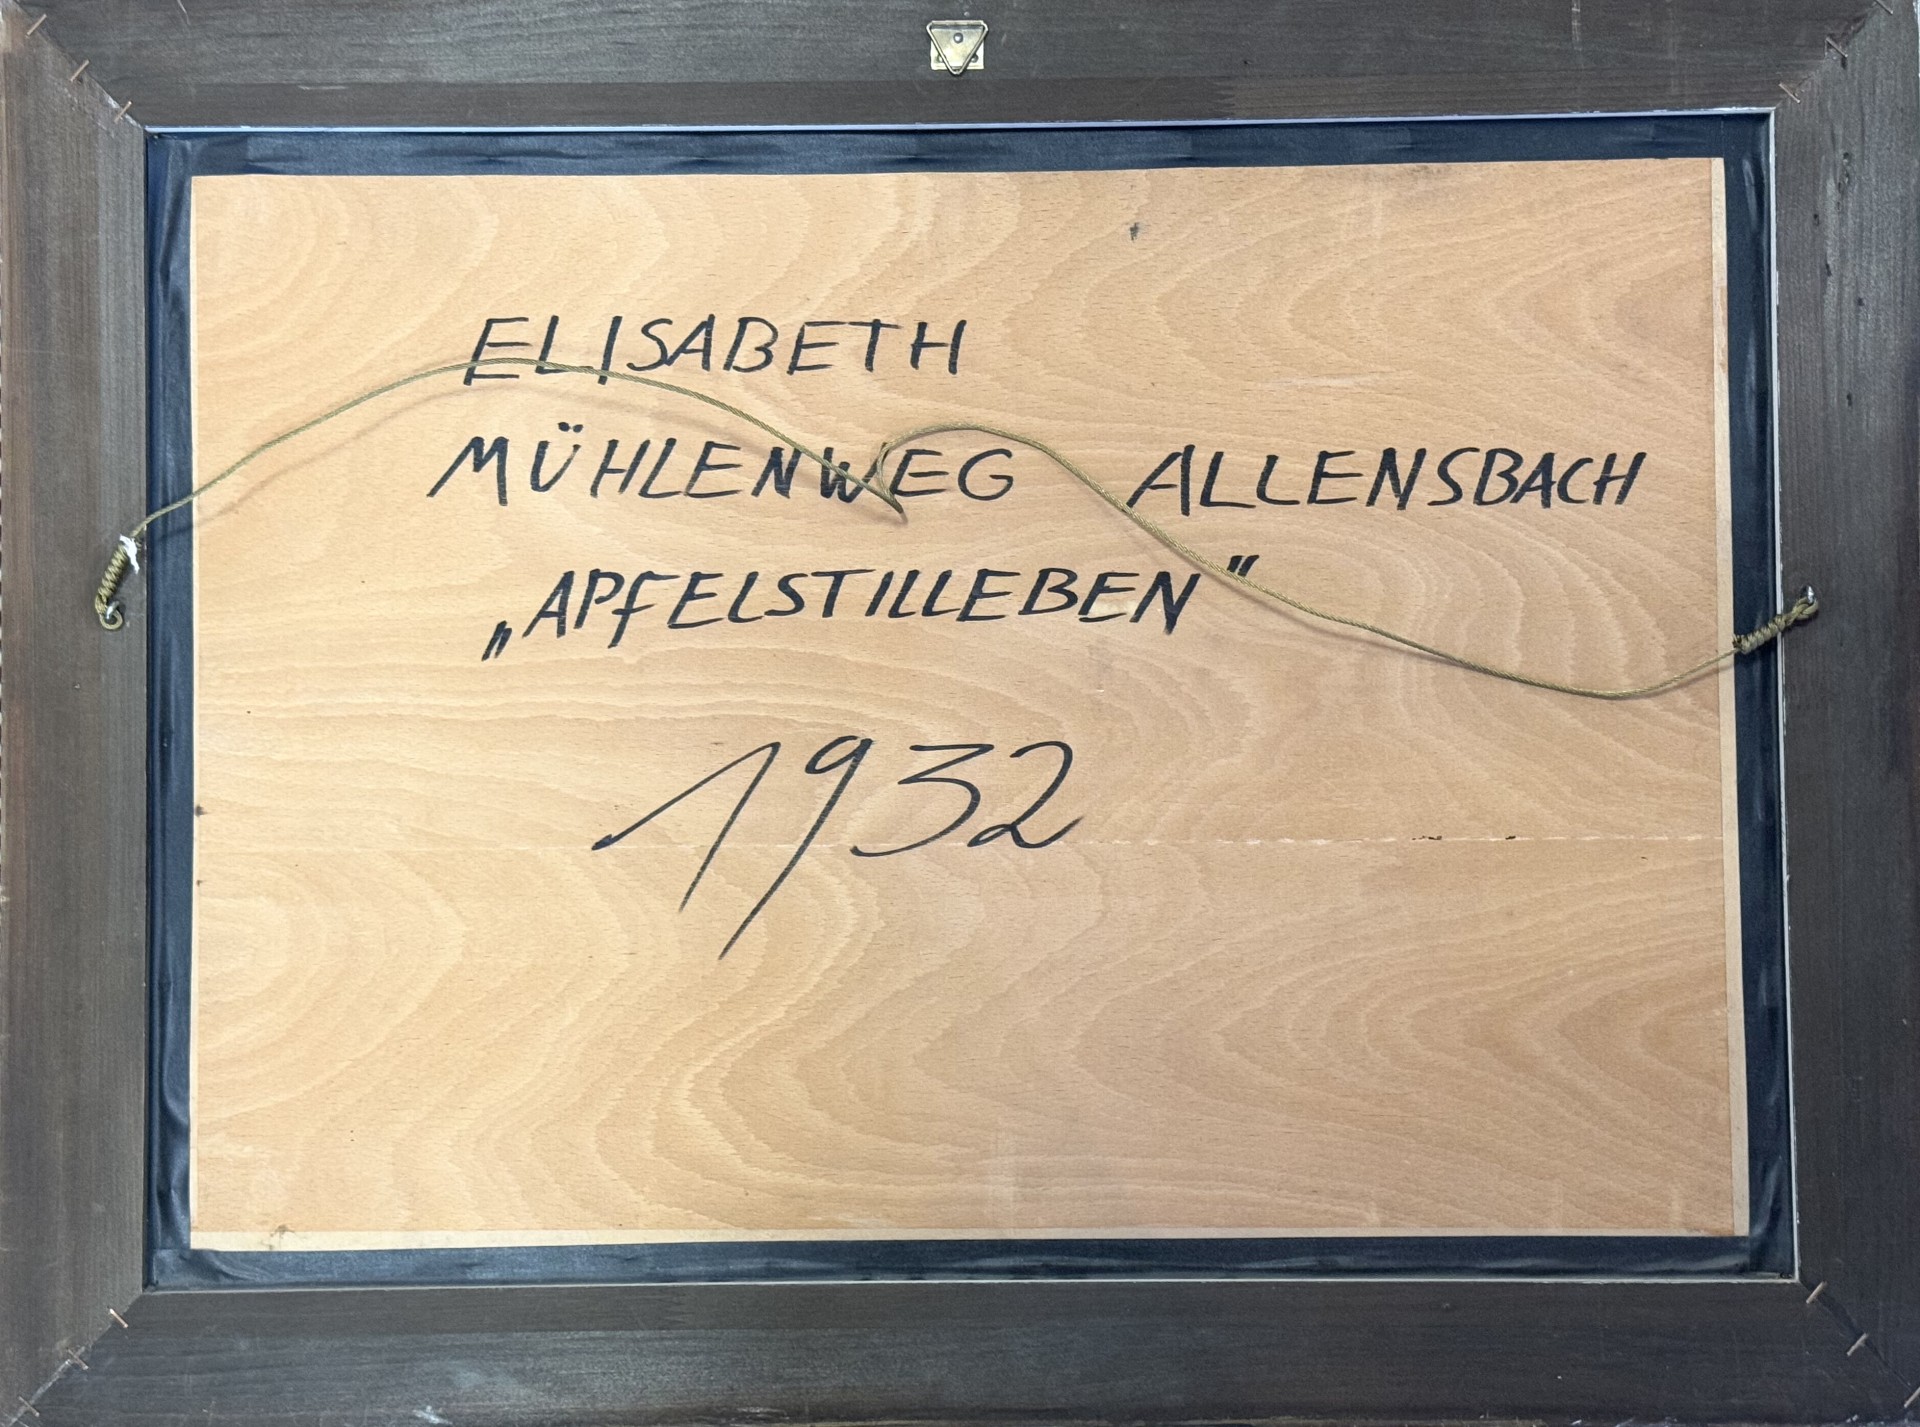 ELISABETH
MÜHLENWEG ALLENSBACH
„APFELSTILLEBEN"
1932